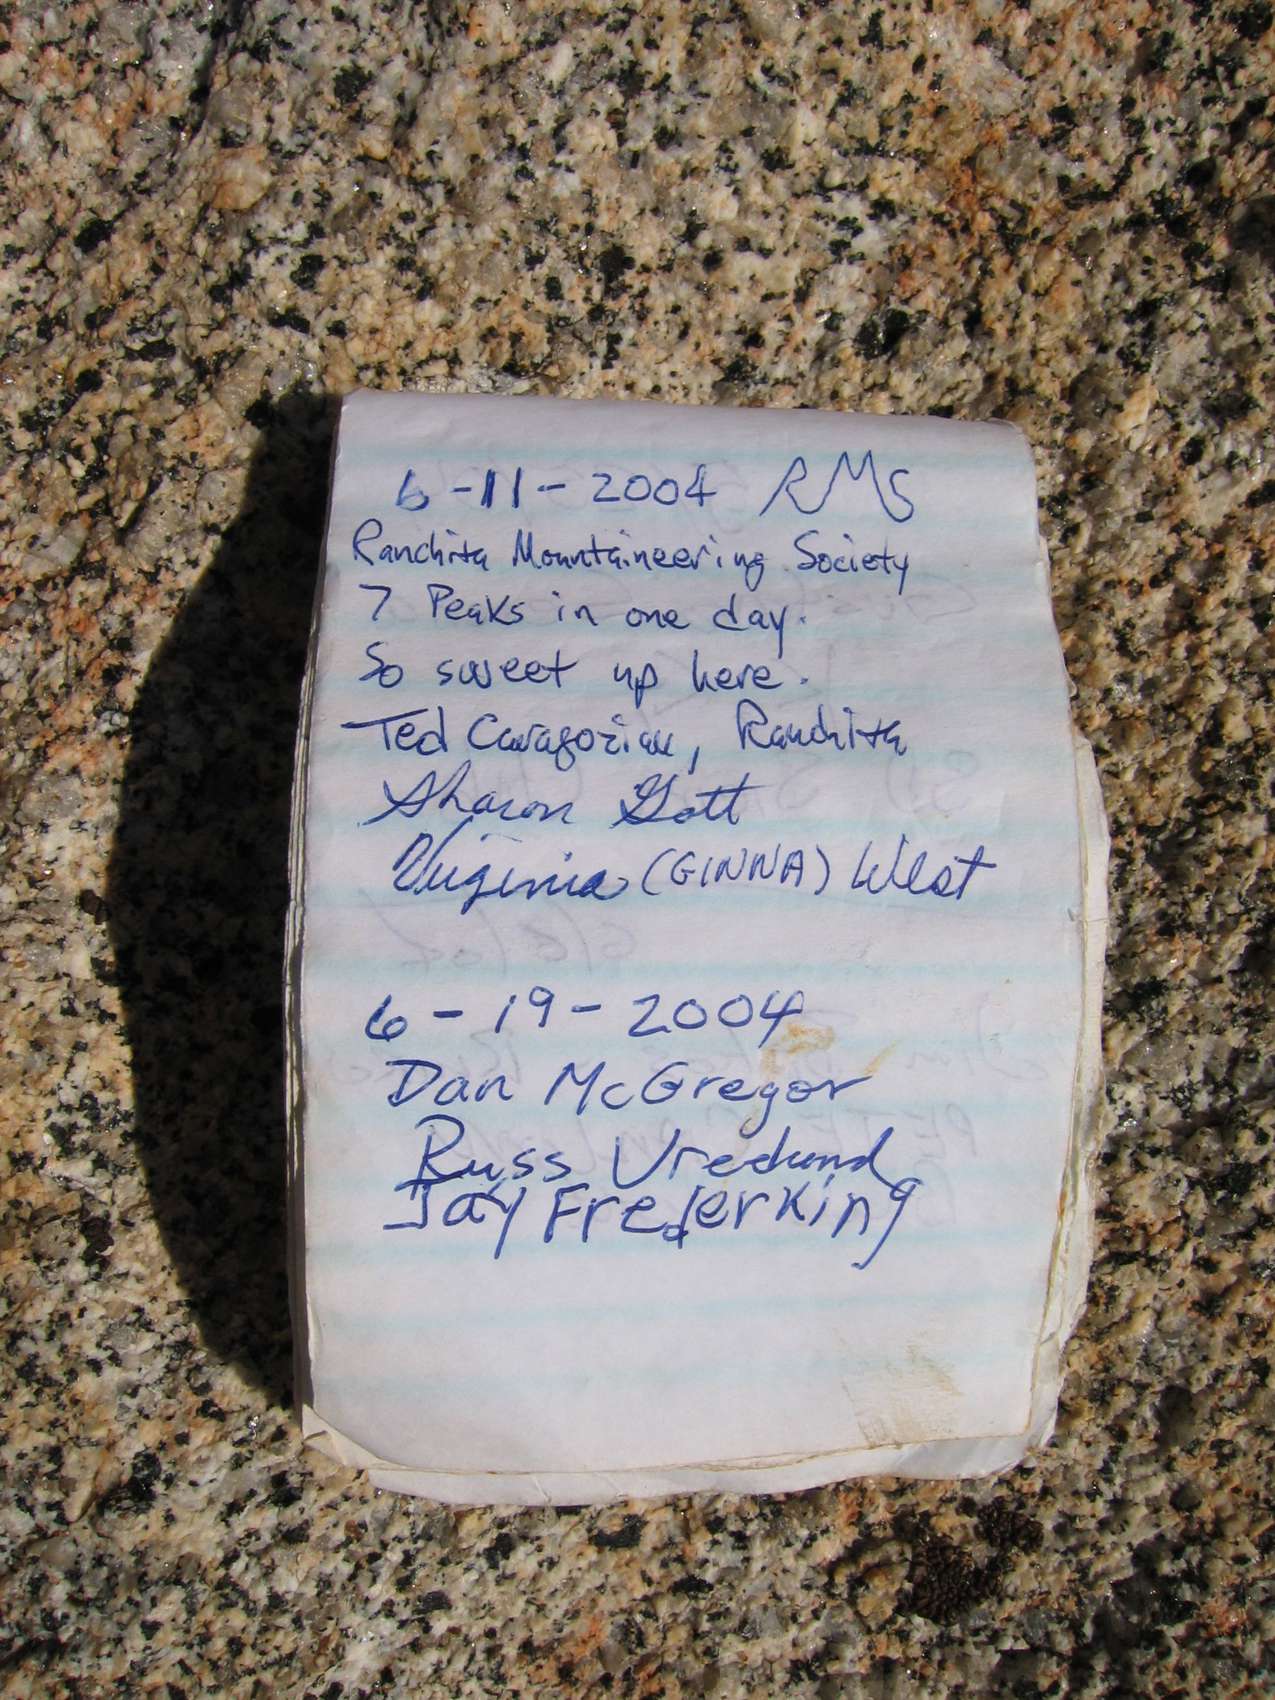 6-11-2004 RMS
Ranchita Mountaineering Society
7 Peaks in one day.
So sweet up here.
Ted Caragozian, Ranchita
Sharon Gott
Virginia (GINNA) West
6-19-2004
Dan McGregor
Russ Vredund
Jay Frederking